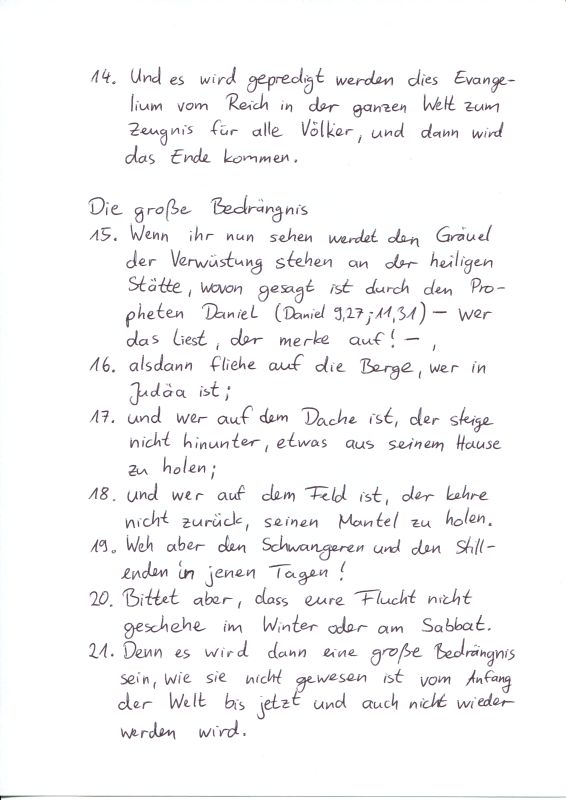 14. Und es wird gepredigt werden dies Evange-
lium vom Reich in der ganzen Welt zum
Zeugnis für alle Völker, und dann wird
das Ende kommen.
Die große Bedrängnis
15. Wenn ihr nun sehen werdet den Gräuel
der Verwüstung stehen an der heiligen
Stätte, wovon gesagt ist durch den Pro-
pheten Daniel (Daniel 9,27; 11,31) – wer
das liest, der merke auf! – ,
16. alsdann fliehe auf die Berge, wer in
Judäa ist;
17. und wer auf dem Dache ist, der steige
nicht hinunter, etwas aus seinem Hause
zu holen;
18. und wer auf dem Feld ist, der kehre
nicht zurück, seinen Mantel zu holen.
19. Weh aber den Schwangeren und den Still-
enden in jenen Tagen!
20. Bittet aber, dass eure Flucht nicht
geschehe im Winter oder am Sabbat.
21. Denn es wird dann eine große Bedrängnis
sein, wie sie nicht gewesen ist vom Anfang
der Welt bis jetzt und auch nicht wieder
werden wird.